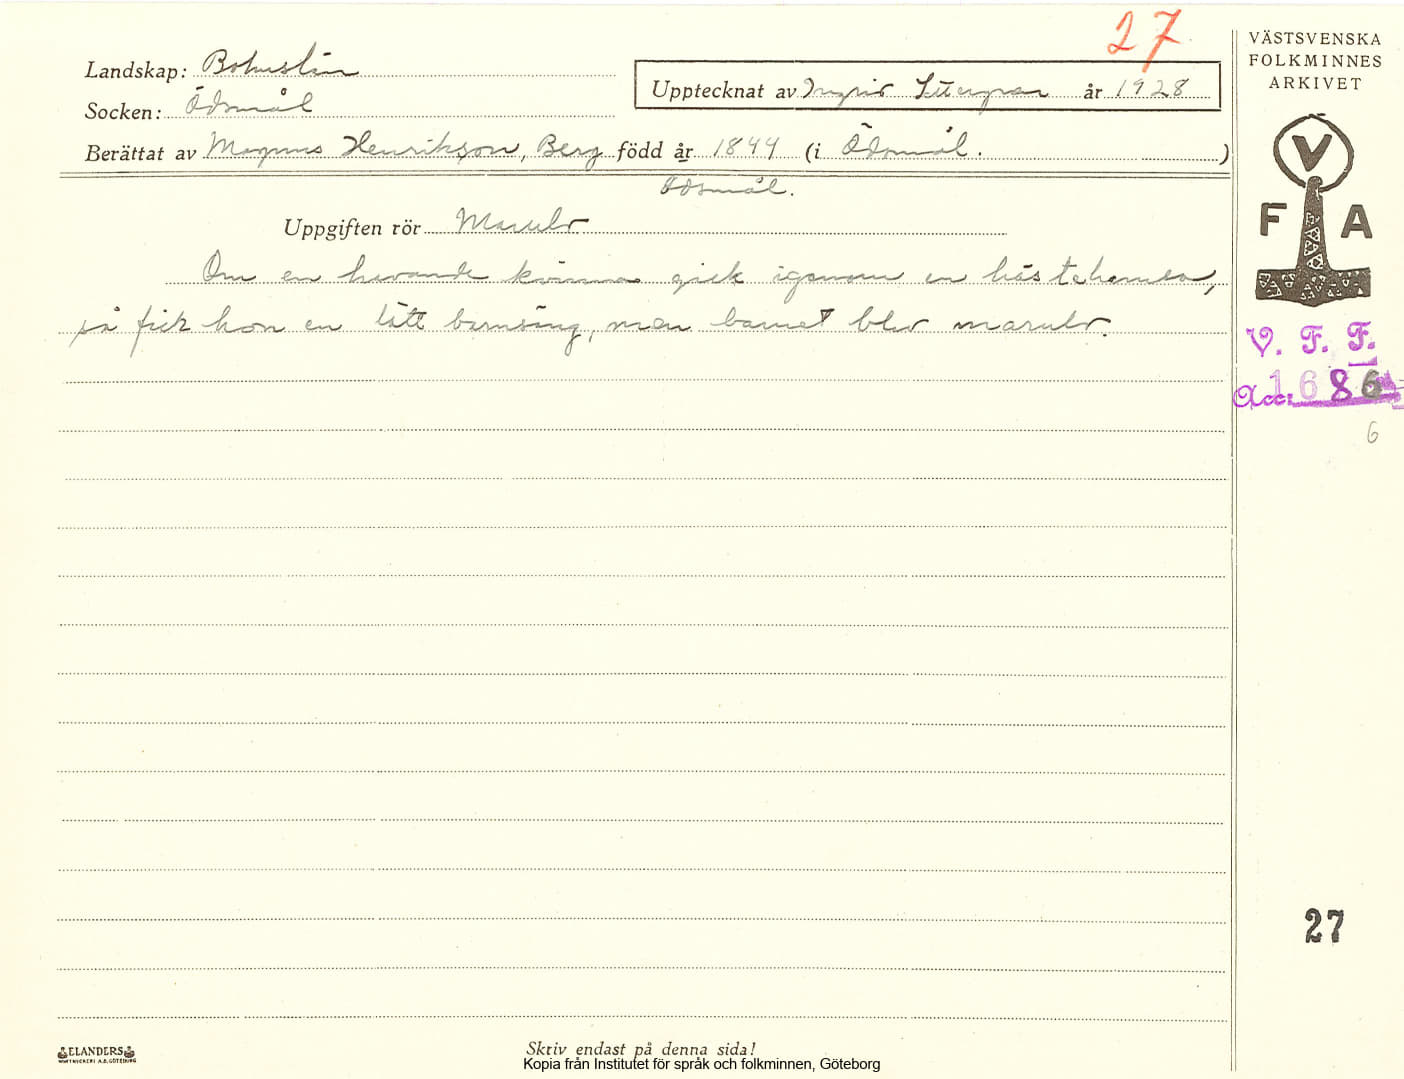 27
Landskap: Bohuslän
Socken: Ödsmål
Upptecknat av Ingrid år 1928
Berättat av Magnus Henrikson, Berg född år 1844 (i Ödsmål. )
Ödsmål.
Uppgiften rör Marulv
Om en havande kvinna gick igenom en hästehamn,
så fick hon en lätt barnsäng, men barnet blev marulv.
VÄSTSVENSKA
FOLKMINNES
ARKIVET
V
F A
V. F. F.
Acc: 1686
6
27
ELANDERS
Skriv endast på denna sida!
Kopia från Institutet för språk och folkminnen, Göteborg